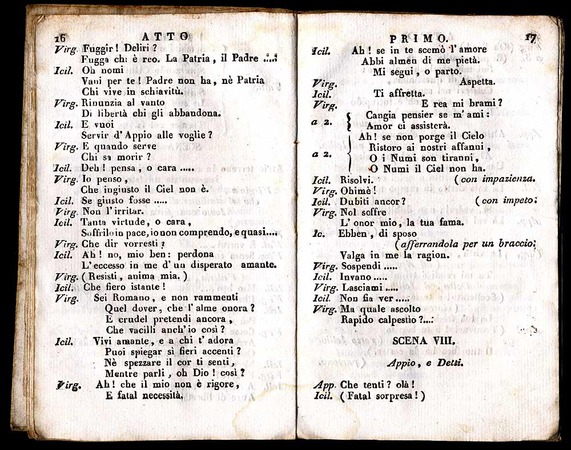 16 ATTO
Virg. Fuggir! Deliri?
Fugga chi è reo. La Patria, il Padre ....
Icil. Oh nomi
Vani per te! Padre non ha, nè Patria
Chi vive in schiavitù.
Virg. Rinunzia al vanto
Di libertà chi gli abbandona.
Icil. E vuoi
Servir d'Appio alle voglie?
Virg. E quando serve
Chi sa morir?
Icil. Deh! pensa, o cara .....
Virg. Io penso,
Che ingiusto il Ciel non è.
Icil. Se giusto fosse .....
Virg. Non l'irritar.
Icil. Tanta virtude, o cara,
Soffrilo in pace, io non comprendo, e quasi....
Virg. Che dir vorresti?
Icil. Ah! no, mio ben: perdona
L'eccesso in me d'un disperato amante.
Virg. (Resisti, anima mia.)
Icil. Che fiero istante!
Virg. Sei Romano, e non rammenti
Quel dover, che l'alme onora?
E crudel pretendi ancora,
Che vacilli anch'io così?
Icil. Vivi amante, e a chi t'adora
Puoi spiegar sì fieri accenti?
Nè spezzare il cor ti senti,
Mentre parli, oh Dio! così?
Virg. Ah! che il mio non è rigore,
E fatal necessità.
PRIMO. 17
Icil. Ah! se in te scemò l'amore
Abbi almen di me pietà.
Mi segui, o parto.
Virg. Aspetta.
Icil. Ti affretta.
Virg. E rea mi brami?
a 2. { Cangia pensier se m'ami:
Amor ci assisterà.
Ah! se non porge il Cielo
a 2. { Ristoro ai nostri affanni,
O i Numi son tiranni,
O Numi il Ciel non ha.
Icil. Risolvi. (con impazienza.
Virg. Ohimè!
Icil. Dubiti ancor? (con impeto:
Virg. Nol soffre
L'onor mio, la tua fama.
Ic. Ebben, di sposo
(afferrandola per un braccio:
Valga in me la ragion.
Virg. Sospendi .....
Icil. Invano .....
Virg. Lasciami .....
Icil. Non fia ver .....
Virg. Ma quale ascolto
Rapido calpestìo?...:
SCENA VIII.
Appio, e Detti.
App. Che tenti? olà!
Icil. (Fatal sorpresa!)